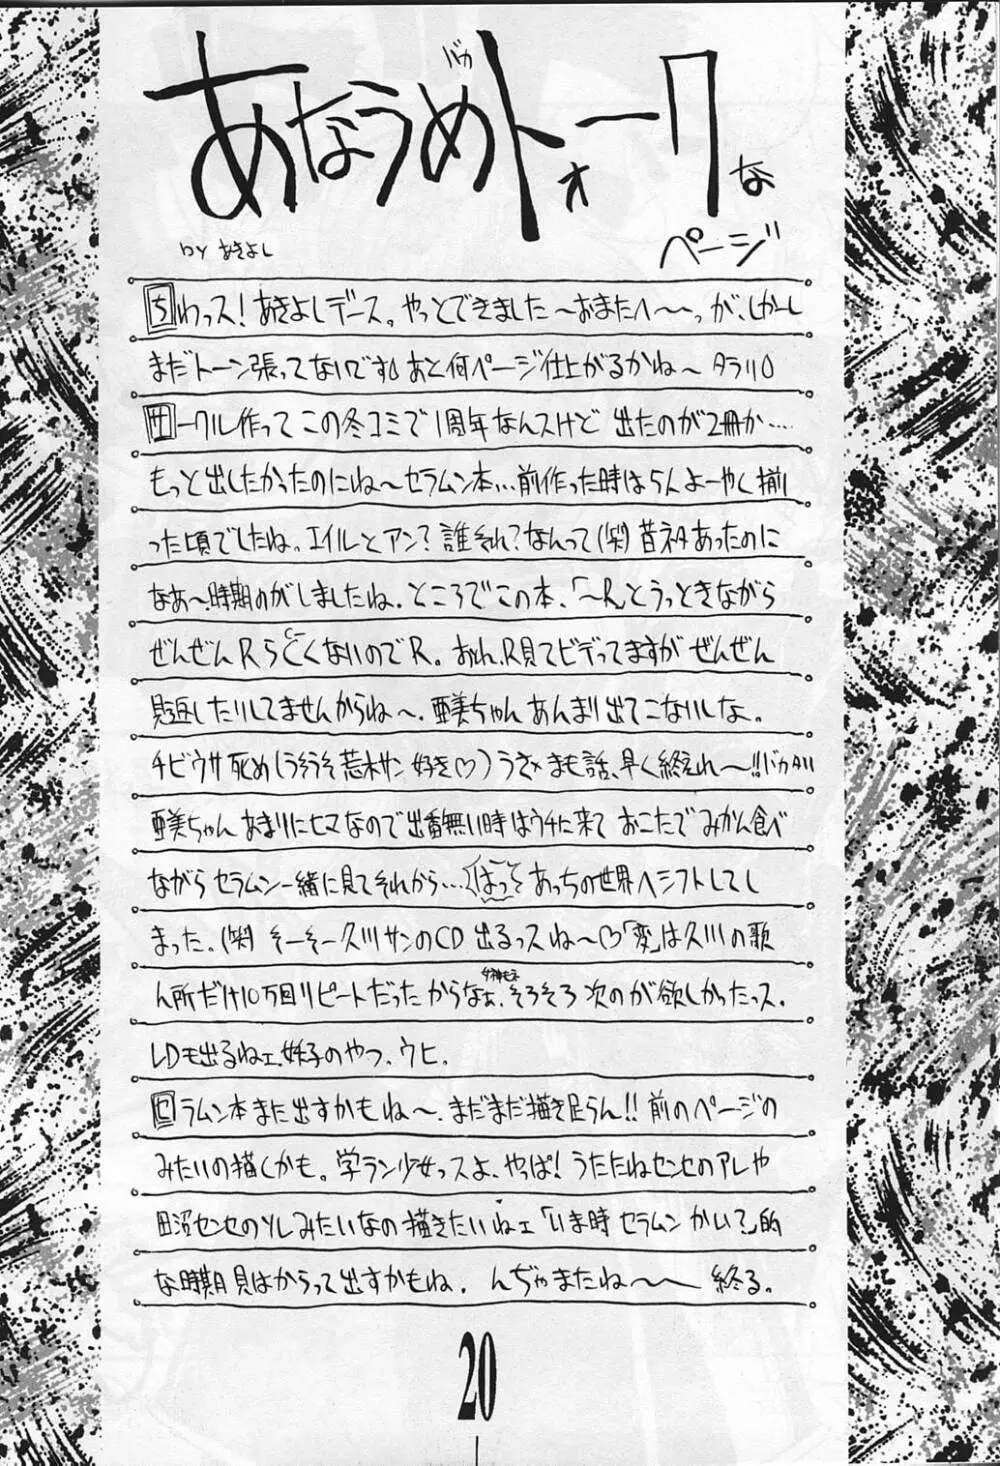 あなうめバカトォークな
ページ
by あきよし
ちわっス！あきよしデース。やっとできました〜おまたへ〜〜っが、しかーし
まだトーン張ってないです あと何ページ仕上がるかね〜 タラリ
サークル作ってこの冬コミで1周年なんスけど 出たのが2冊か…
もっと出したかったのにね〜セラムン本…前作った時は5人よーやく揃
った頃でしたね。エイルとアン？誰それ？なんって(笑)昔ネタあったのに
なあ〜、時期のがしましたね。ところでこの本、「〜R」とうっときながら
ぜんぜんRらしくないのでR。おれ、R見てビデってますがぜんぜん
見返したりしてませんからね〜。亜美ちゃんあんまり出てこないしな。
チビウサ死め(うそうそ荒木サン好き♡)うさ×まも話、早く終えれ〜!!バカタリ
亜美ちゃんあまりにヒマなので出番無い時はウチに来ておこたでみかん食べ
ながらセラムン一緒に見てそれから…はっ あっちの世界へシフトしてし
まった。(笑)そーそー久川サンのCD出るっスね〜♡「変」は久川の歌
ん所だけ10万回リピートだったからなぁ、女神もネ そろそろ次のが欲しかったっス。
LDも出るねェ、妖子のやつ、ウヒ。
セラムン本また出すかもね〜。まだまだ描き足らん!!前のページの
みたいの描くかも。学ラン少女っスよ、やっぱ！うたたねセンセのアレや
田沼センセのソレみたいなの描きたいねェ「いま時セラムンかい？」的
な時期見はからって出すかもね。んぢゃまたね〜〜 終る。
20